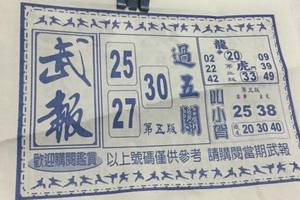 武報
25
27
30
過五關
第五版
龍
虎
02 20 09
22 39
42 33 49
叫小管
第五版
25 38
20 30 40
歡迎購閱鑑賞
以上號碼僅供參考 請購閱當期武報